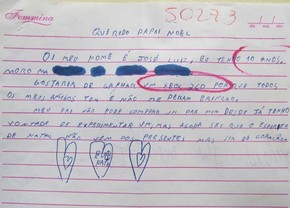 Femmina
50273
QUERIDO PAPAI NOEL
OS MEU NOME É JOSÉ LUIZ, EU TENHO 10 ANOS,
MORO NA
GOSTARIA DE GANHAR UM XBOX 360 PORQUE TODOS
OS MEUS AMIGOS TEM E NÃO ME DEIXAM BRINCAR,
MEU PAI NÃO PODE COMPRAR UM PRA MIM DESDE JÁ TENHO
VONTADE DE EXPERIMENTAR UM, MAS AGORA SEI QUE O
DE NATAL NÃO VEM DOS PRESENTES MAS SIM DO CORAÇÃO